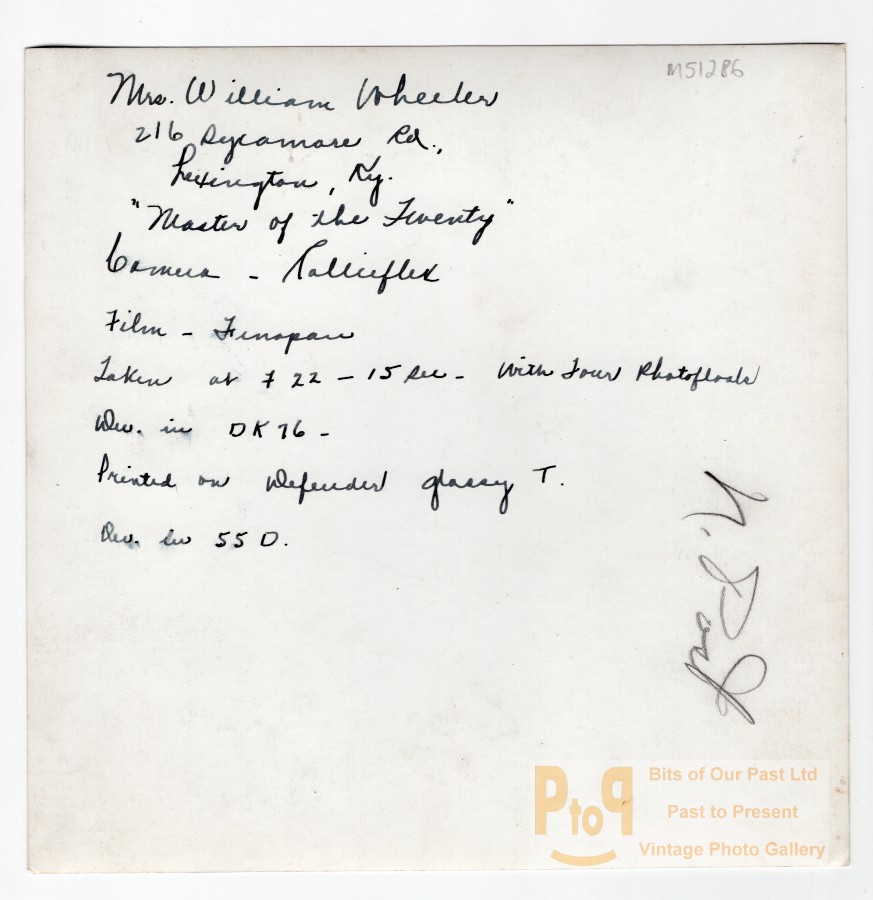 M51286
Mrs. William Wheeler
216 Sycamore Rd.,
Lexington, Ky.
"Master of the Twenty"
Camera - Rollieflex
Film - Finopan
Taken at F 22 - 15 sec - With Four Photofloods
Dev. in DK 76 -
Printed on Defender glossy T.
Dev. in 55 D.
PtoP
Bits of Our Past Ltd
Past to Present
Vintage Photo Gallery